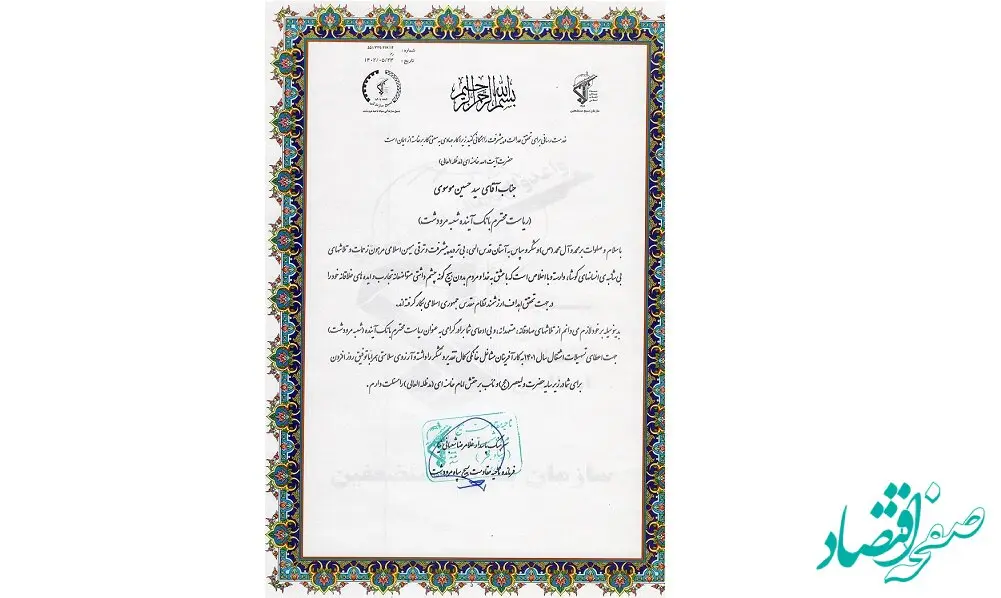 شماره:
تاریخ: ۱۴۰۲/۰۵/۲۳
بسم الله الرحمن الرحیم
خدمت رسانی برای تحقق عدالت و پیشرفت را همگانی کنید زیرا کار جهادی به معنی کار برخاسته از ایمان است
حضرت آیت الله خامنه ای (مدظله العالی)
جناب آقای سید حسین موسوی
(ریاست محترم بانک آینده شعبه مرودشت)
با سلام و صلوات بر محمد و آل محمد (ص) و شکر و سپاس به آستان قدس الهی، بی تردید پیشرفت و ترقی میهن اسلامی مرهون زحمات و تلاشهای
بی شائبه ی انسانهای کوشا، وارسته و با اخلاص است که با عشق به خدا و مردم بدون هیچ گونه چشم داشتی متواضعانه تجارب و ایده های خلاقانه خود را
در جهت تحقق اهداف ارزشمند نظام مقدس جمهوری اسلامی بکار گرفته اند.
بدینوسیله بر خود لازم می دانم از تلاشهای صادقانه، متعهدانه، و بی ادعای شما برادر گرامی به عنوان ریاست محترم بانک آینده (شعبه مرودشت)
جهت اعطای تسهیلات اشتغال سال ۱۴۰۱ به کارآفرینان مشاغل خانگی کمال تقدیر و تشکر را داشته و آرزوی سلامتی همراه با توفیق روز افزون
برای شما در زیر سایه حضرت ولیعصر (عج) و نائب بر حقش امام خامنه ای (مدظله العالی) را مسئلت دارم.
سرهنگ پاسدار غلامرضا شعبانی
فرمانده ناحیه مقاومت بسیج سپاه مرودشت
صفحه اقتصاد